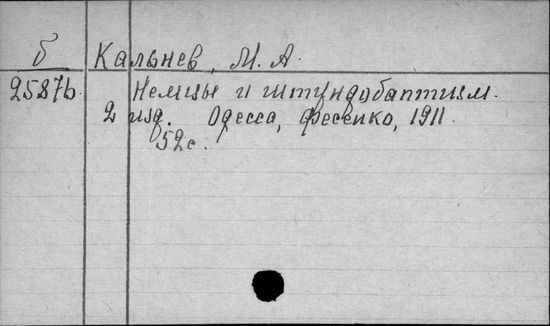 б Кальнев, М. А.
2587b. Немцы и штундобаптизм.
2 изд. Одесса, Фесенко, 1911.
52с.